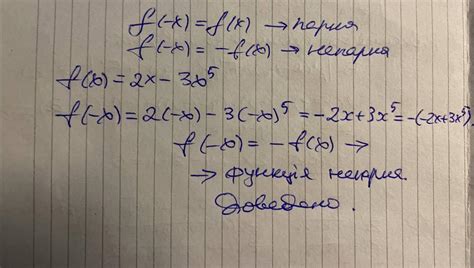 f(-x) = f(x) → парня
f(-x) = -f(x) → непарня
f(x) = 2x - 3x⁵
f(-x) = 2(-x) - 3(-x)⁵ = -2x + 3x⁵ = -(-2x + 3x⁵).
f(-x) = -f(x) →
→ функція непарня.
Доведено.